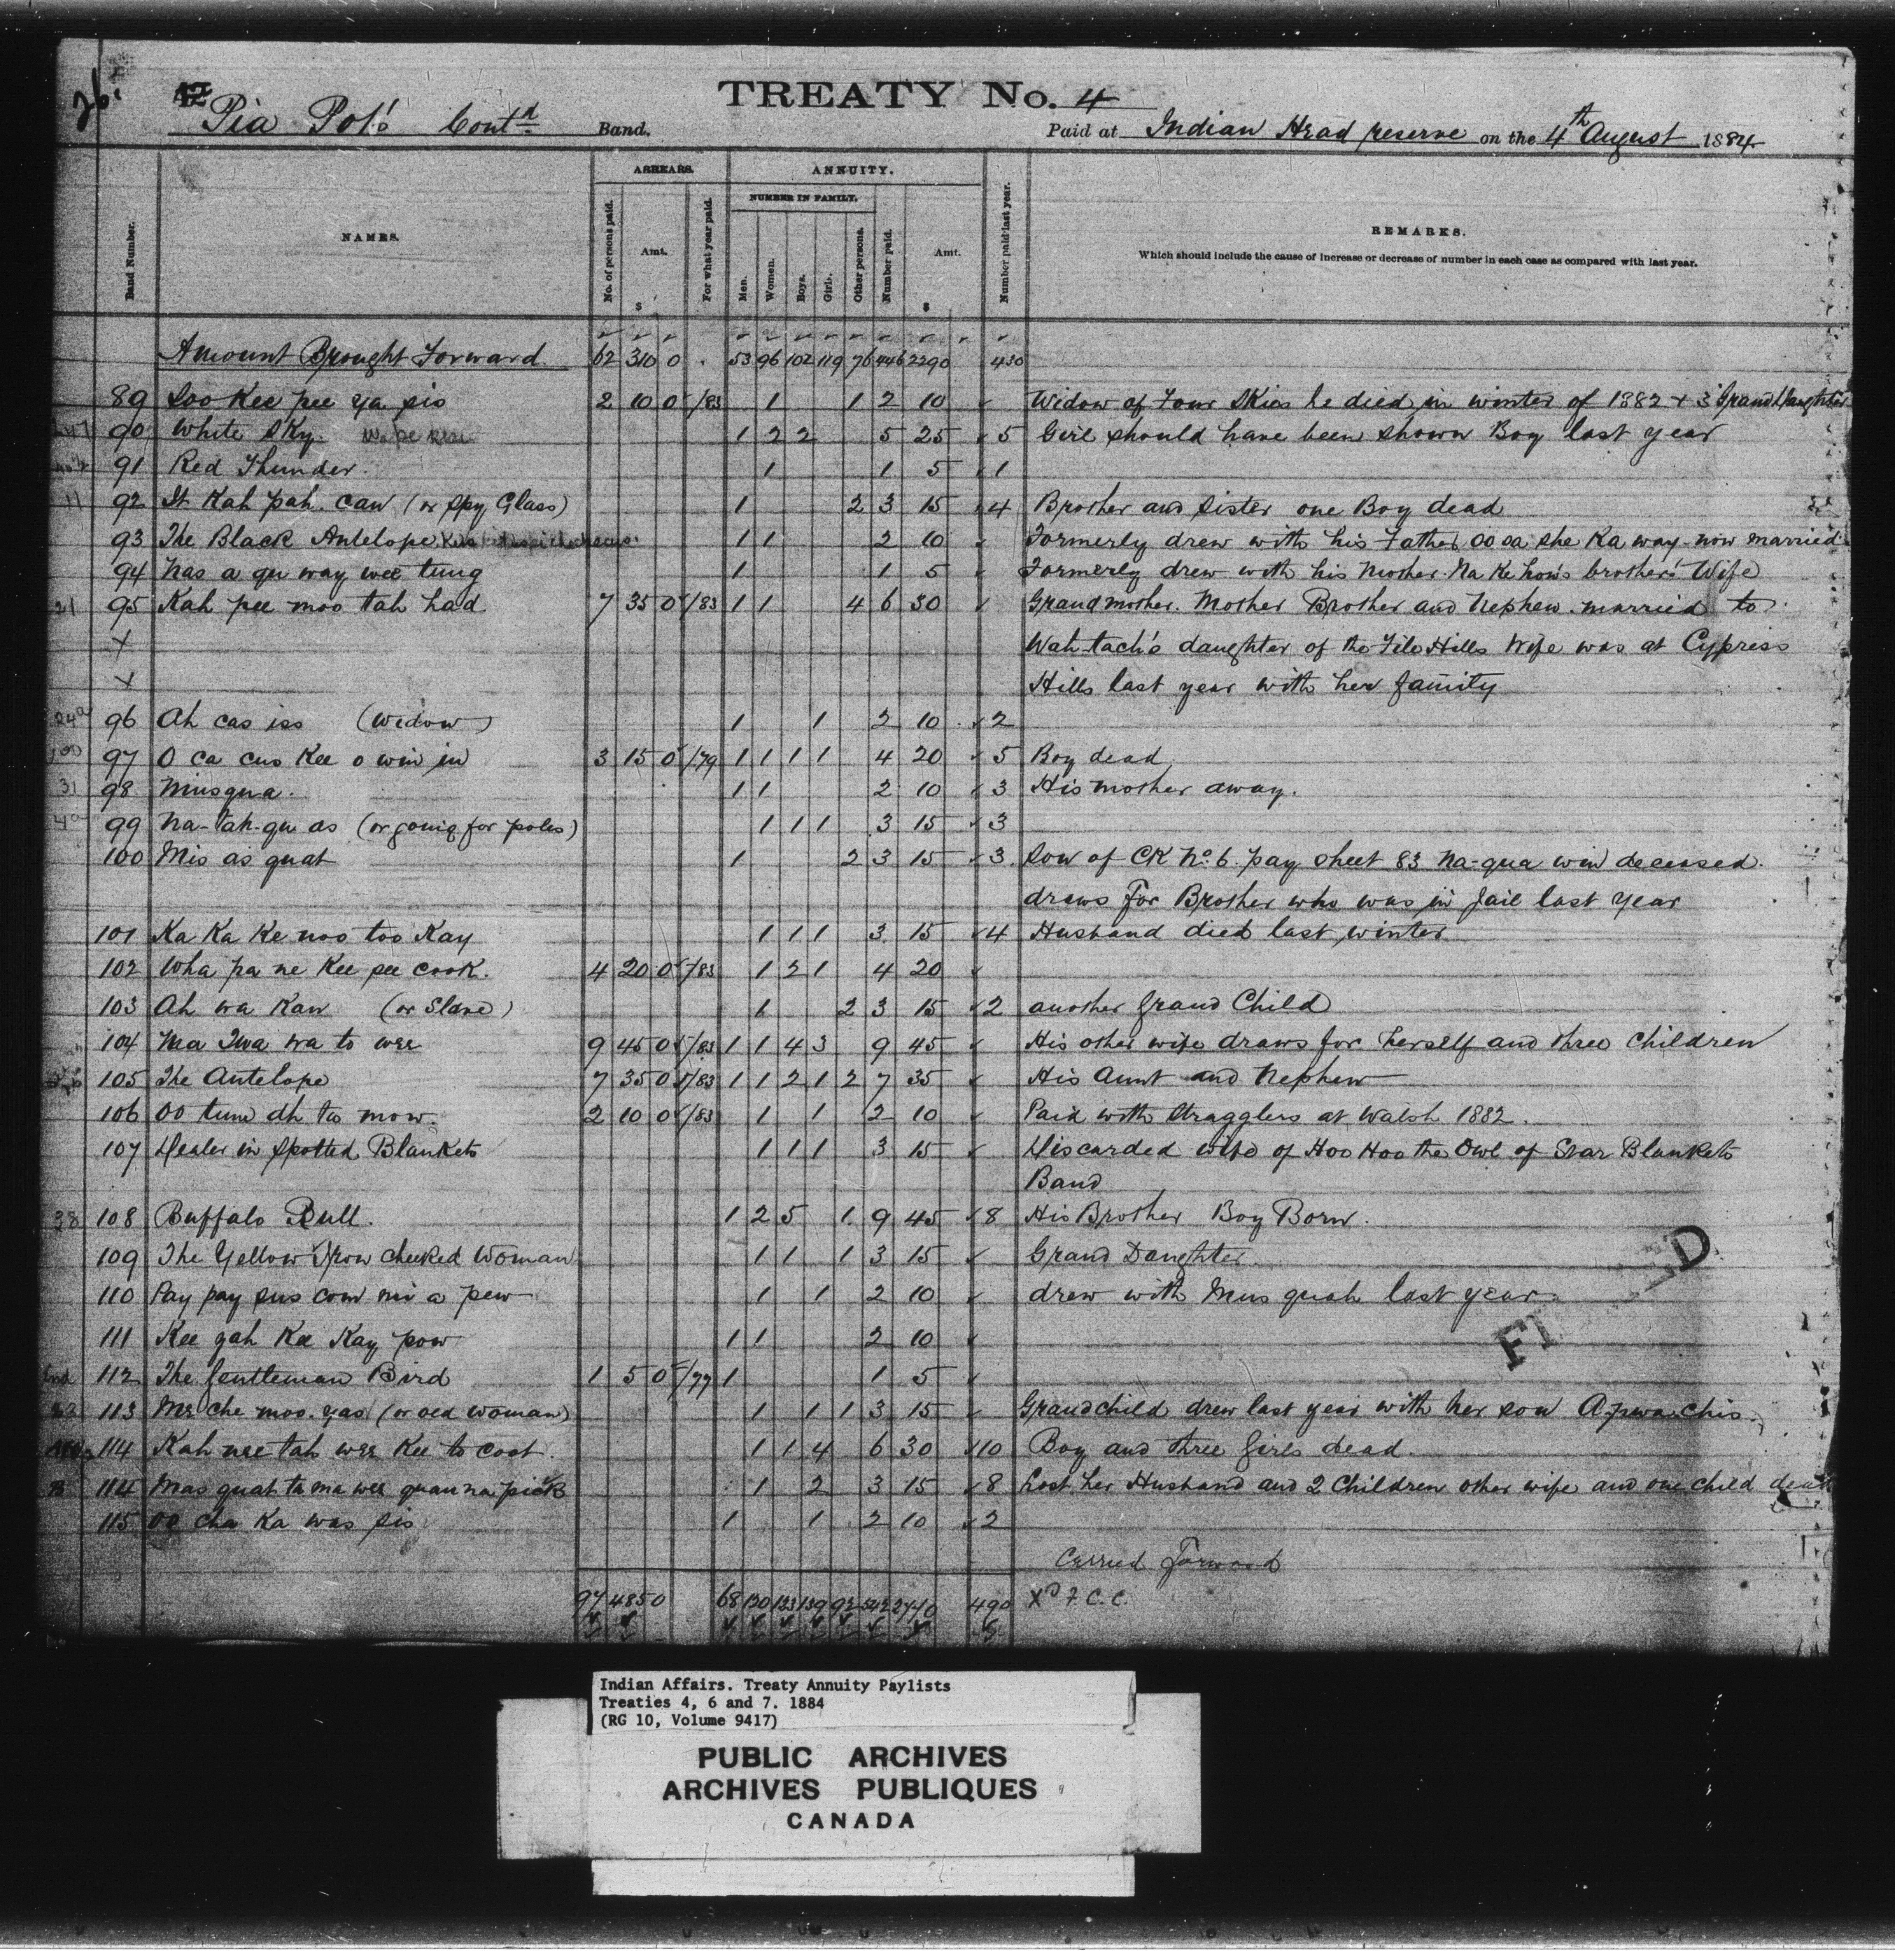 26.
TREATY No. 4
Pia Pot's Cont'd Band. Paid at Indian Head reserve on the 4th August 1884
ARREARS. ANNUITY.
NUMBER IN FAMILY.
Band Number. NAMES. No. of persons paid. Amt. $ For what year paid. Men. Women. Boys. Girls. Other persons. Number paid. Amt. $ Number paid last year. REMARKS.
Which should include the cause of increase or decrease of number in each case as compared with last year.
Amount Brought Forward 62 310 0 53 96 102 119 76 446 2290 430
89 Soo Kee pee ya sis 2 10 0 /83 1 1 2 10 Widow of Four Skies he died in winter of 1882 + 3 Grand Daughter
90 White Sky. 1 2 2 5 25 5 Girl should have been shown Boy last year
91 Red Thunder. 1 1 5 1
11 92 It Kah pah. caw (or Spy Glass) 1 2 3 15 4 Brother and Sister one Boy dead
93 The Black Antelope 1 1 2 10 Formerly drew with his Father oo sa she Ka way now married
94 Nas a qu way wee tung 1 1 5 Formerly drew with his Mother. Na Ke how's brother's Wife
21 95 Kah pee moo tah had. 7 35 0 /83 1 1 4 6 30 Grandmother. Mother Brother and Nephew. married to
X Wah-tach's daughter of the File Hills Wife was at Cypress
X Hills last year with her family
96 Ah cas iss (Widow) 1 1 2 10 2
97 O ca cus Kee o win in 3 15 0 /79 1 1 1 1 4 20 5 Boy dead
31 98 Musqua. 1 1 2 10 3 His mother away.
99 Na-tah-qu as (or going for poles) 1 1 1 3 15 3
100 Mis as quat 1 2 3 15 3 Son of CK No. 6 pay sheet 83 Na-qua win deceased.
draws for Brother who was in Jail last year
101 Ka Ka Ke noo too Kay 1 1 1 3 15 4 Husband died last winter
102 Wha pa ne Kee see cook. 4 20 0 /83 1 2 1 4 20
103 Ah wa Kaw (or Slave) 1 2 3 15 2 another Grand Child
104 Ma Twa wa to wee 9 45 0 /83 1 1 4 3 9 45 His other wife draws for herself and three Children
105 The Antelope 7 35 0 /83 1 1 2 1 2 7 35 His Aunt and Nephew
106 Oo tum ah ta mow. 2 10 0 /83 1 1 2 10 Paid with Stragglers at Walsh 1882.
107 Dealer in Spotted Blankets 1 1 1 3 15 Discarded wife of Hoo Hoo the Owl of Star Blankets
Band
38 108 Buffalo Bull. 1 2 5 1 9 45 8 His Brother Boy Born.
109 The Yellow Brow cheeked Woman 1 1 1 3 15 Grand Daughter.
110 Pay pay sus com mi a pew 1 1 2 10 drew with Mus quah last year
111 Kee yah Kee Kay pow 1 1 2 10
112 The Gentleman Bird 1 5 0 /77 1 1 5
113 Me che moo. yas (or old woman) 1 1 1 3 15 Grandchild drew last year with her son Apwa chis.
114 Kah nee tah wee Kee to coot. 1 1 4 6 30 10 Boy and three Girls dead.
114 Mas quat ta ma wee quan na pick 1 2 3 15 8 Lost her Husband and 2 Children other wife and one child dead
115 Oo cha Ka was sis 1 1 2 10 2
Carried Forward
97 485 0 68 130 123 139 92 542 2770 490 Xd F. C. C.
Indian Affairs. Treaty Annuity Paylists
Treaties 4, 6 and 7. 1884
(RG 10, Volume 9417)
PUBLIC ARCHIVES
ARCHIVES PUBLIQUES
CANADA